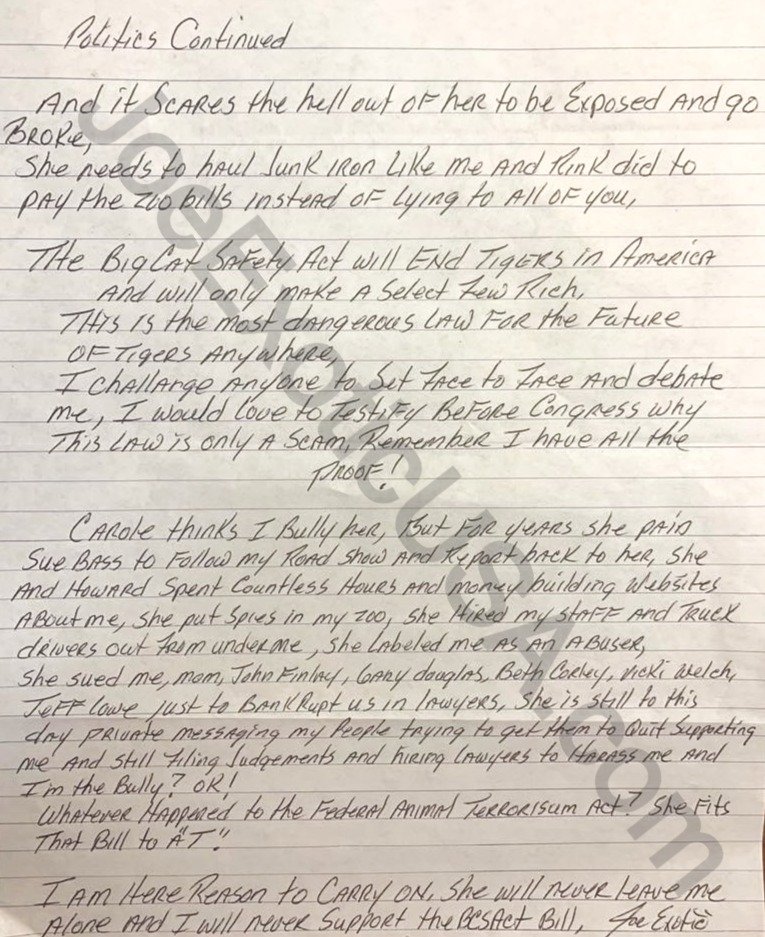 Politics Continued
And it Scares the hell out of her to be Exposed And go
Broke,
She needs to haul Junk iron Like me And Rink did to
pay the zoo bills instead of Lying to All of you,
The Big Cat Safety Act will End Tigers in America
And will only make A Select Few Rich,
This is the most dangerous Law For the Future
of Tigers Anywhere,
I challange Anyone to Set Face to Face And debate
me, I would Love to Testify Before Congress why
This Law is only A Scam, Remember I have All the
Proof!
Carole thinks I Bully her, But For years she paid
Sue Bass to Follow my Road Show And Report back to her, She
And Howard Spent Countless Hours And money building Websites
About me, She put Spies in my zoo, She Hired my Staff And Truck
drivers out From under me, She Labeled me As An Abuser,
She sued me, mom, John Finlay, Gary douglas, Beth Corley, Vicki Welch,
Jeff Lowe just to Bankrupt us in Lawyers, She is still to this
day private messaging my People trying to get them to Quit Supporting
me And still Filing Judgements And hiring Lawyers to Harass me And
I'm the Bully? OK!
Whatever Happened to the Federal Animal Terrorisum Act? She Fits
That Bill to A "T".
I am Here Reason to Carry on, She will never leave me
Alone And I will never Support the BCSAct Bill, Joe Exotic
JoeExoticUSA.com